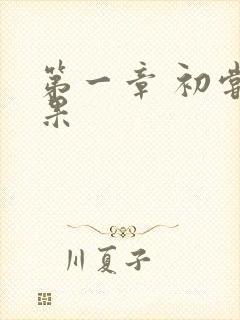 第一章 初尝
果
川夏子